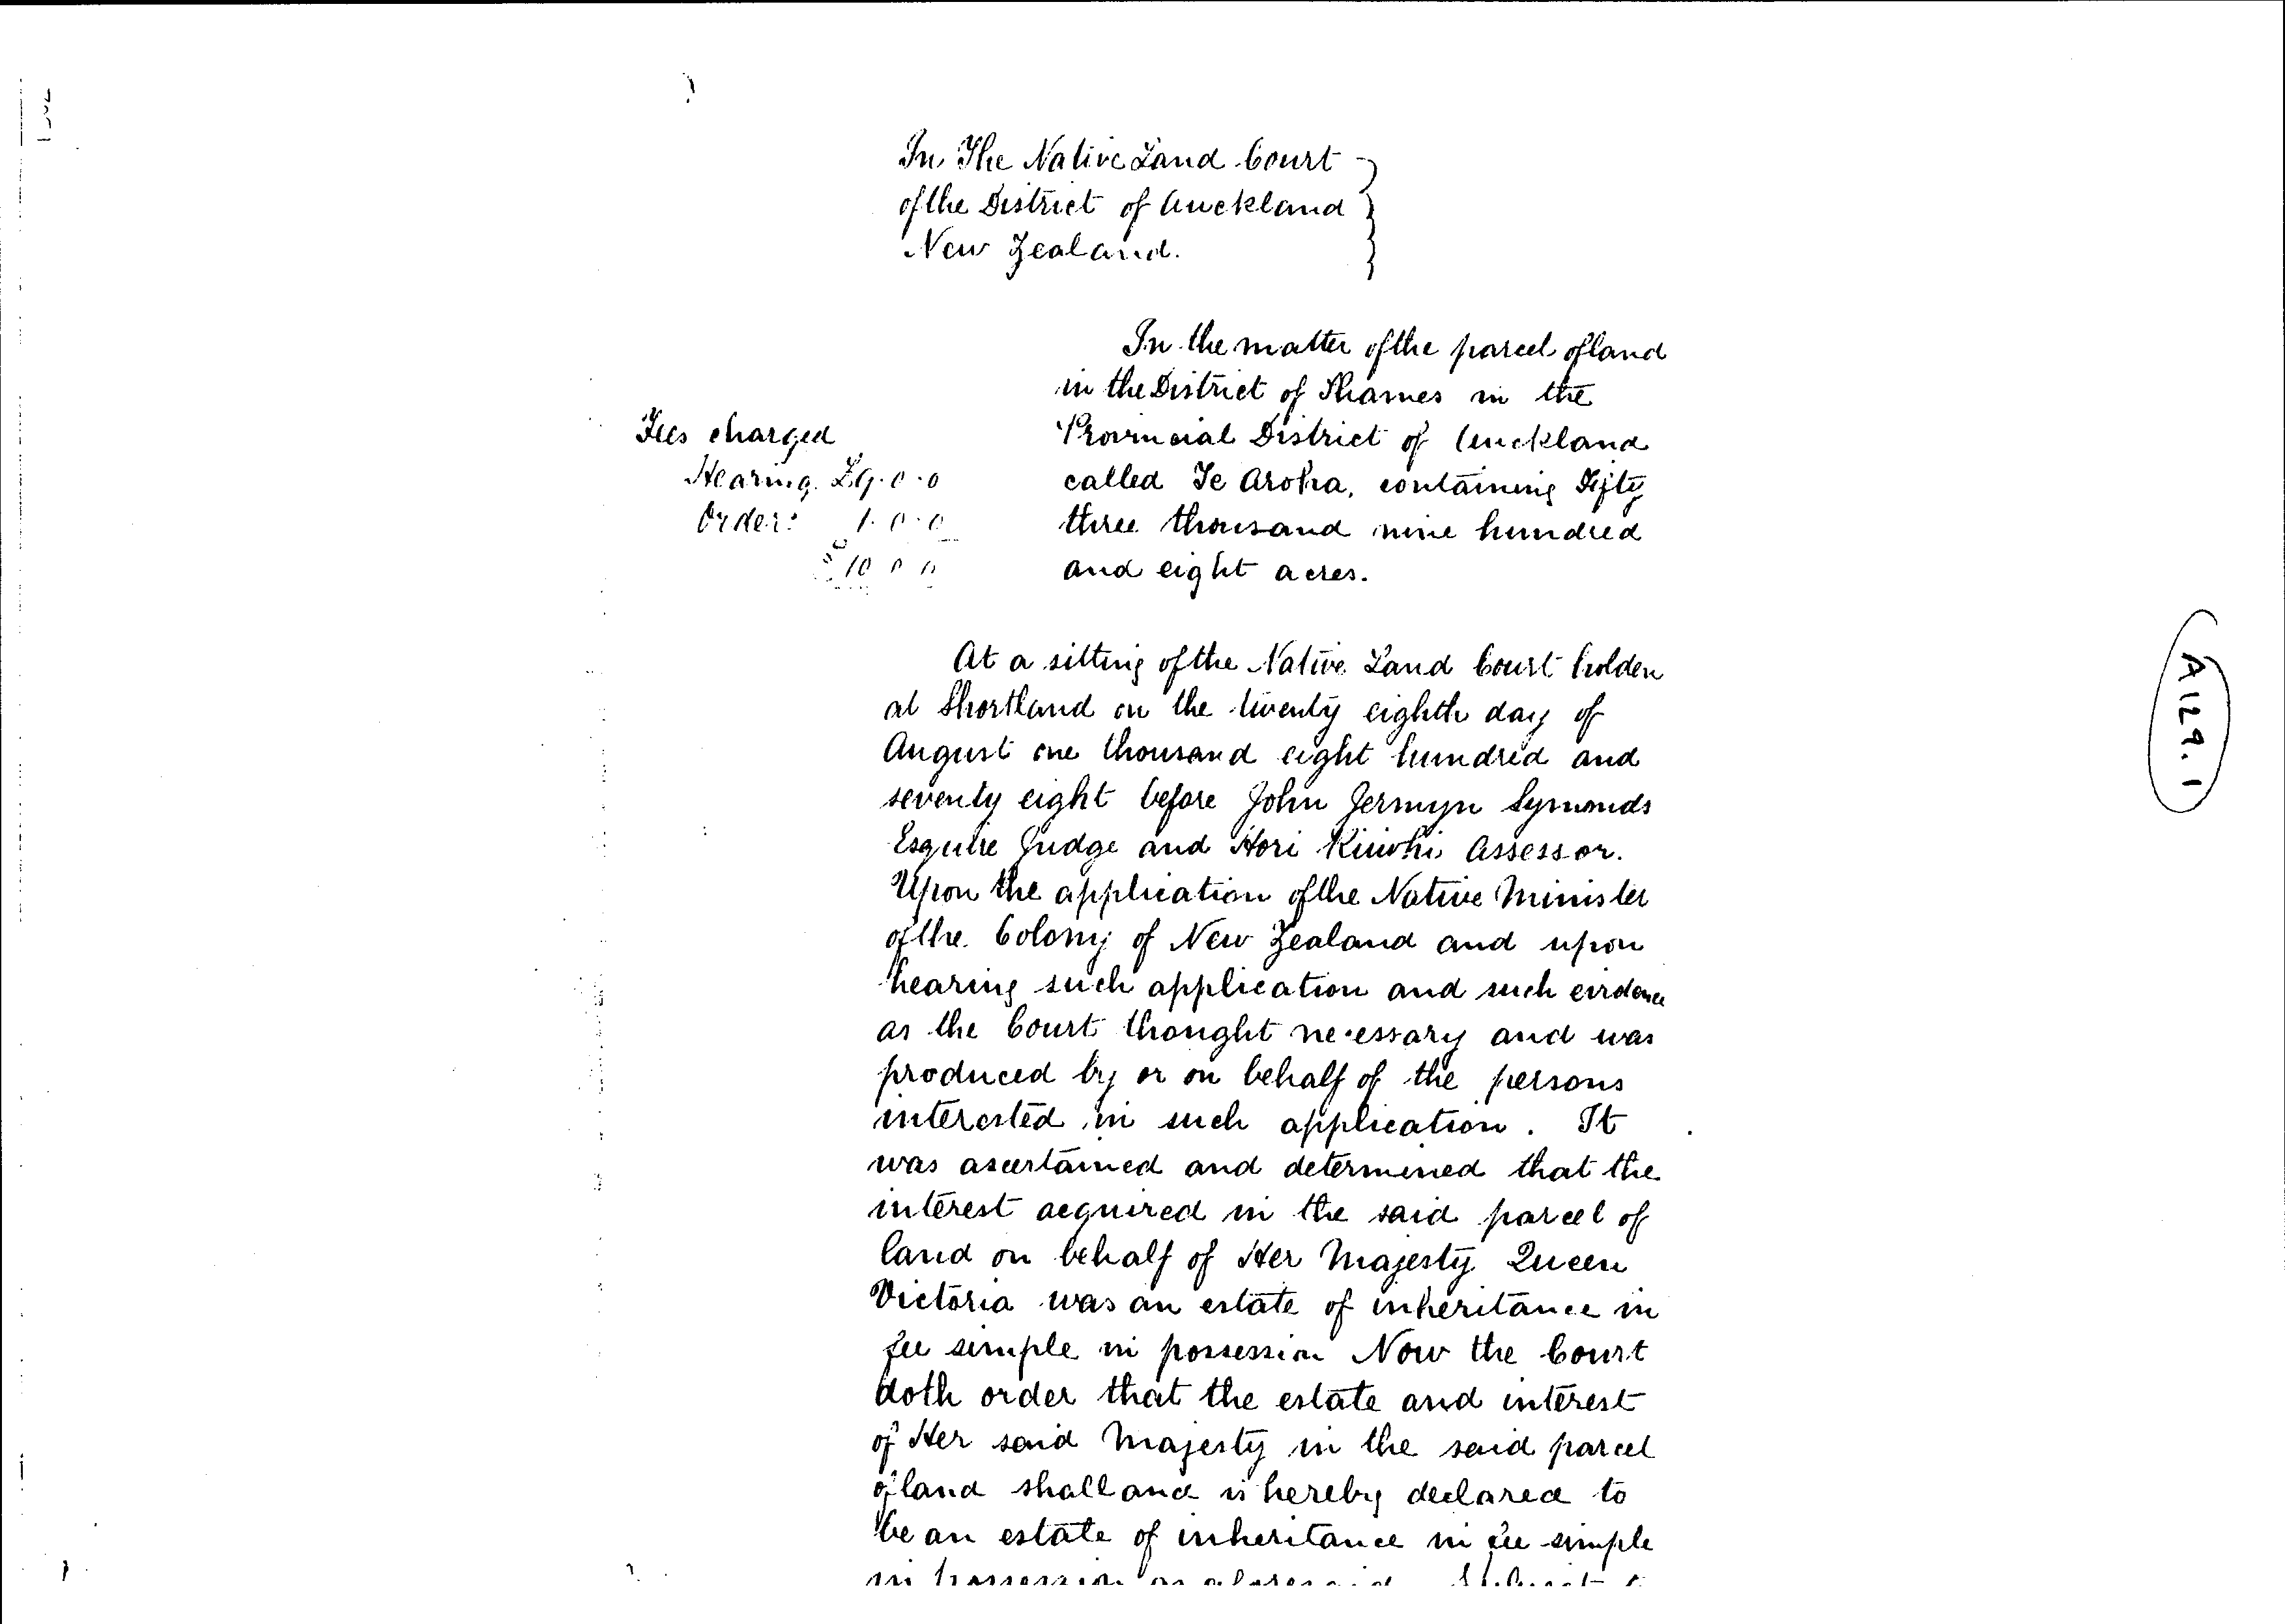 In The Native Land Court
of the District of Auckland
New Zealand.
In the matter of the parcel of land
in the District of Thames in the
Provincial District of Auckland
called Te Aroha, containing Fifty
three thousand nine hundred
and eight acres.
Fees charged
Hearing. £9.0.0
Order: 1.0.0
£10 0 0
At a sitting of the Native Land Court holden
at Shortland on the twenty eighth day of
August one thousand eight hundred and
seventy eight before John Jermyn Symonds
Esquire Judge and Hori Assessor.
Upon the application of the Native Minister
of the Colony of New Zealand and upon
hearing such application and such evidence
as the Court thought necessary and was
produced by or on behalf of the persons
interested in such application. It
was ascertained and determined that the
interest acquired in the said parcel of
land on behalf of Her Majesty Queen
Victoria was an estate of inheritance in
fee simple in possession Now the Court
doth order that the estate and interest
of Her said Majesty in the said parcel
of land shall and is hereby declared to
be an estate of inheritance in fee simple
in possession as aforesaid
A129.1